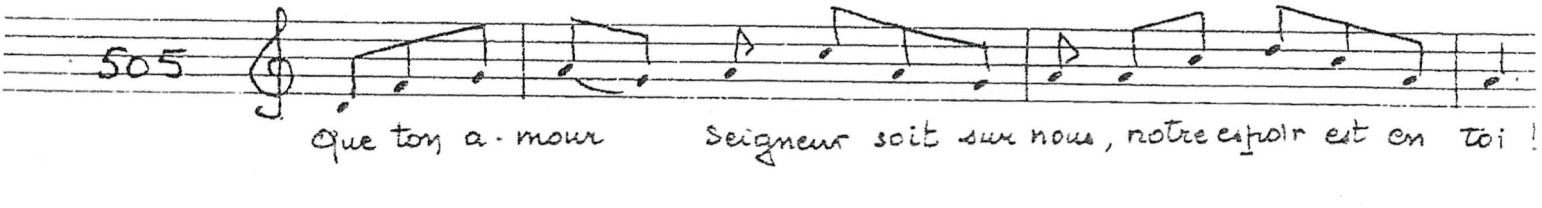 505
Que ton a-mour Seigneur soit sur nous, notre espoir est en toi !